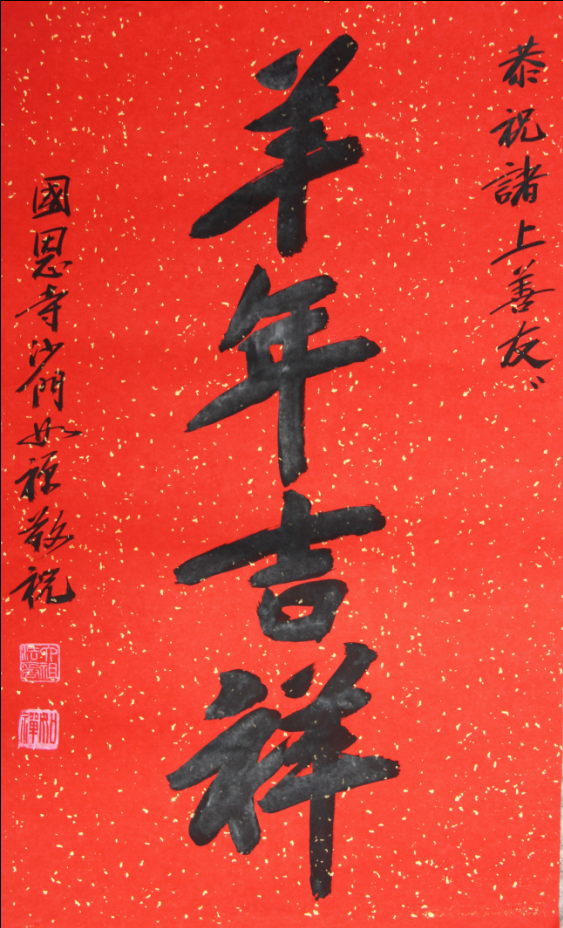 恭祝諸上善友〻
羊年吉祥
國恩寺沙門如禪敬祝
如禪